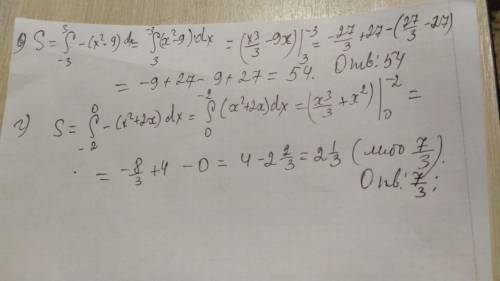 в) S = ∫₋₃³ -(x²-9) dx = ∫₃⁻³ (x²-9)·dx = (x³/3 - 9x)|₃⁻³ = -27/3 + 27 - (27/3 - 27)
= -9+27-9+27 = 54. Отв: 54
г) S = ∫₋₂⁰ -(x²+2x) dx = ∫₀⁻² (x²+2x) dx = (x³/3 + x²)|₀⁻² =
= -8/3 + 4 - 0 = 4 - 2 2/3 = 2 1/3 (либо 7/3).
Отв: 7/3;